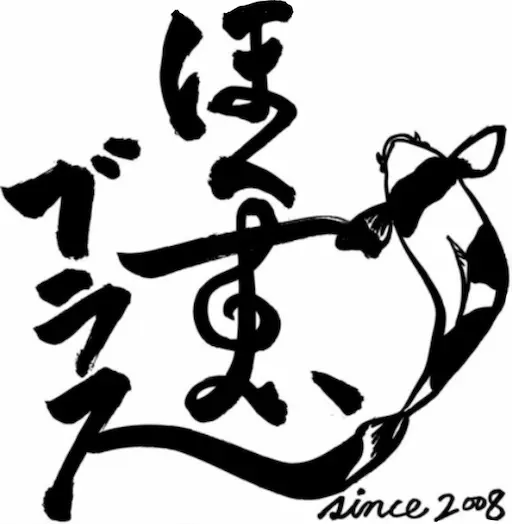 ほく
ブラス
since 2008